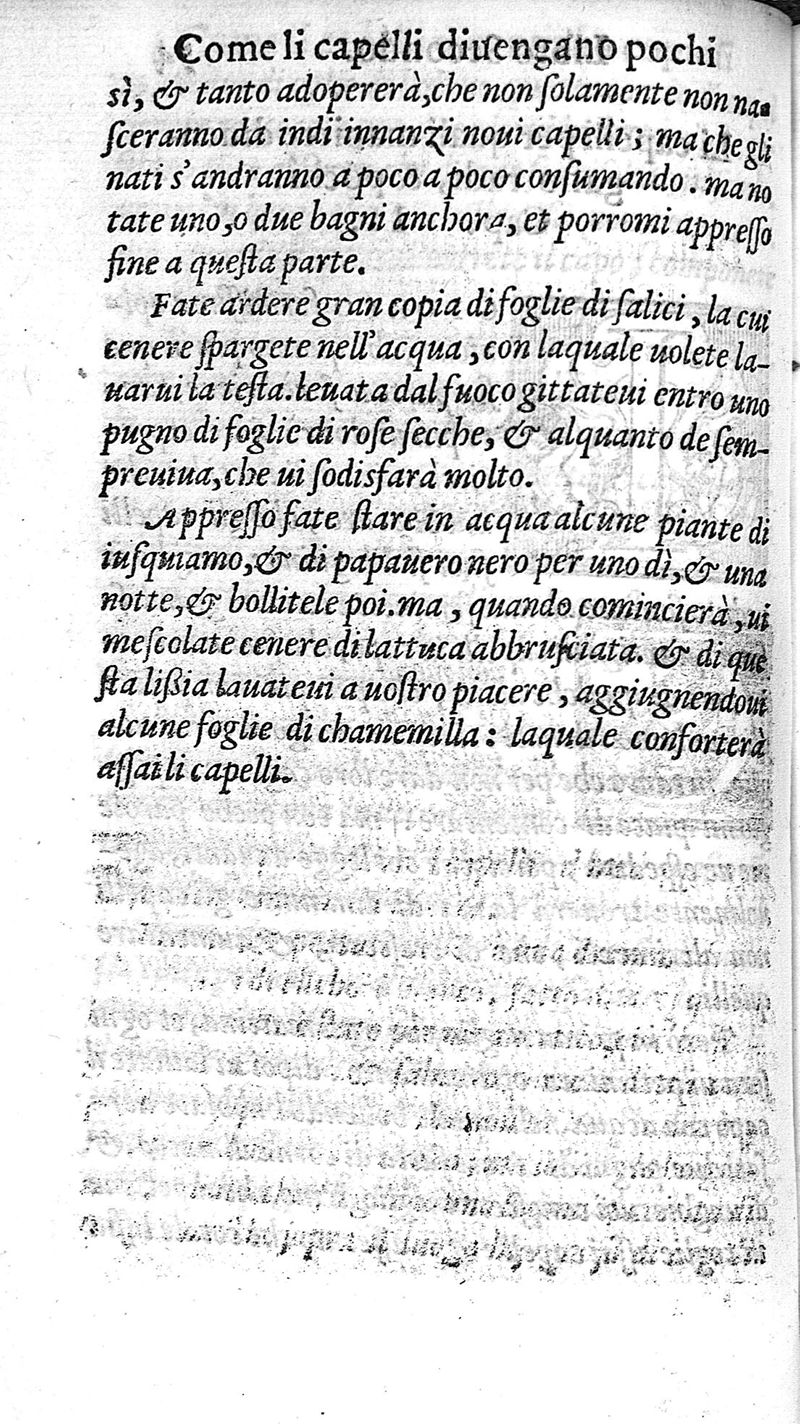 Come li capelli diuengano pochi
sì, & tanto adopererà, che non ſolamente non na-
ſceranno da indi innanzi noui capelli; ma che gli
nati s'andranno a poco a poco conſumando. ma no
tate uno, o due bagni anchora, et porromi appreſſo
fine a queſta parte.
Fate ardere gran copia di foglie di ſalici, la cui
cenere ſpargete nell'acqua, con laquale uolete la-
uarui la teſta. leuata dal fuoco gittateui entro uno
pugno di foglie di roſe ſecche, & alquanto de ſem-
preuiua, che ui ſodisfarà molto.
Appreſſo fate ſtare in acqua alcune piante di
iuſquiamo, & di papauero nero per uno dì, & una
notte, & bollitele poi. ma, quando comincierà, ui
meſcolate cenere di lattuca abbruſciata. & di que
ſta lißia lauateui a uoſtro piacere, aggiugnendoui
alcune foglie di chamemilla: laquale conforterà
aſſai li capelli.